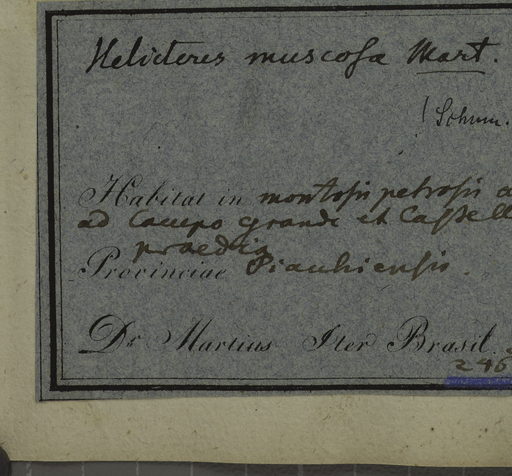 Helicteres muscosa Mart.
Schum.
Habitat in montosis petrosis
ad Campo grande et Castell
praedia
Provinciae Piauhiensis.
Dr Martius Iter Brasil.
246